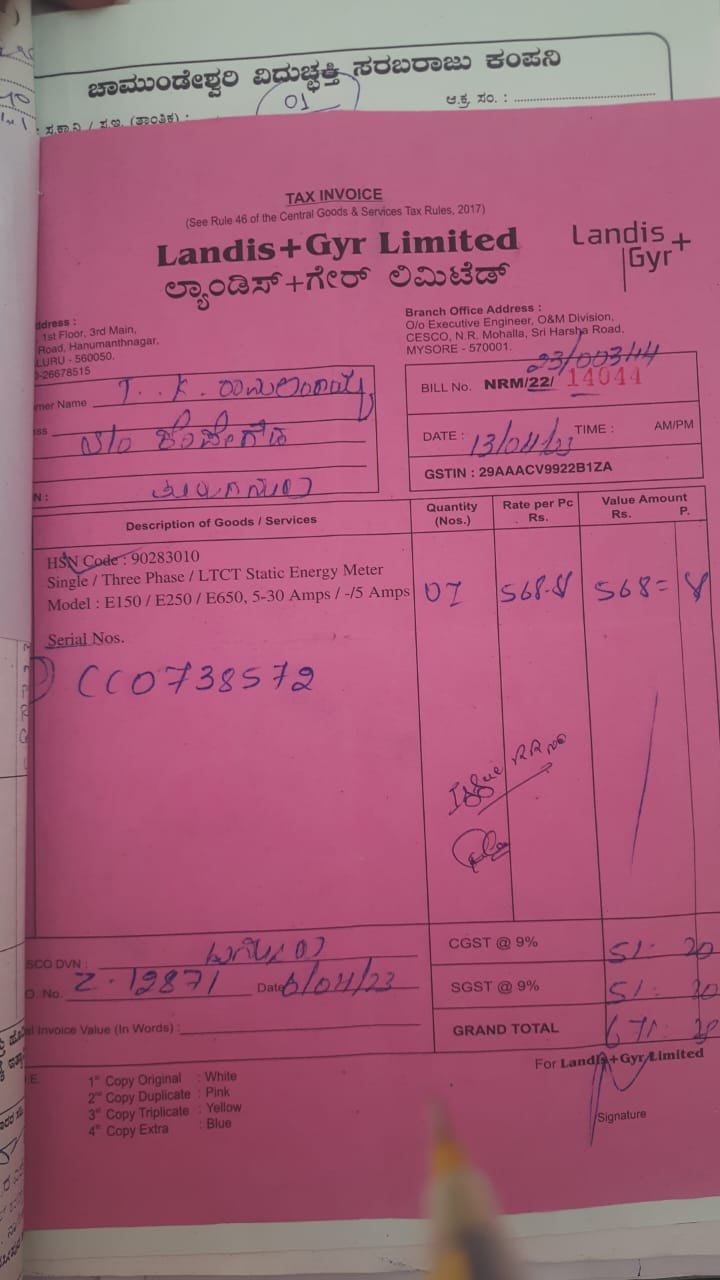 ಚಾಮುಂಡೇಶ್ವರಿ ವಿದ್ಯುಚ್ಛಕ್ತಿ ಸರಬರಾಜು ಕಂಪನಿ
01
ಆ.ಕ್ರ. ಸಂ. :
(ತಾಂತ್ರಿಕ) :
TAX INVOICE
(See Rule 46 of the Central Goods & Services Tax Rules, 2017)
Landis+Gyr Limited
ಲ್ಯಾಂಡಿಸ್+ಗೇರ್ ಲಿಮಿಟೆಡ್
Landis+
Gyr
ddress :
1st Floor, 3rd Main,
Road, Hanumanthnagar,
LURU - 560050.
-26678515
Branch Office Address :
O/o Executive Engineer, O&M Division,
CESCO, N.R. Mohalla, Sri Harsha Road,
MYSORE - 570001.
mer Name T. K.
ss S/o
N :
BILL No. NRM/22/ 14044
DATE : 13/04/23 TIME : AM/PM
GSTIN : 29AAACV9922B1ZA
Description of Goods / Services Quantity (Nos.) Rate per Pc Rs. Value Amount Rs. P.
HSN Code : 90283010
Single / Three Phase / LTCT Static Energy Meter
Model : E150 / E250 / E650, 5-30 Amps / -/5 Amps 01 568 568=
Serial Nos.
CC0738572
Issue RR No
SCO DVN :
O. No. 2-12871 Date 6/04/23
el Invoice Value (In Words) :
CGST @ 9% 51. 20
SGST @ 9% 51. 20
GRAND TOTAL 671.
E. 1st Copy Original : White
2nd Copy Duplicate : Pink
3rd Copy Triplicate : Yellow
4th Copy Extra : Blue
For Landis+Gyr Limited
Signature